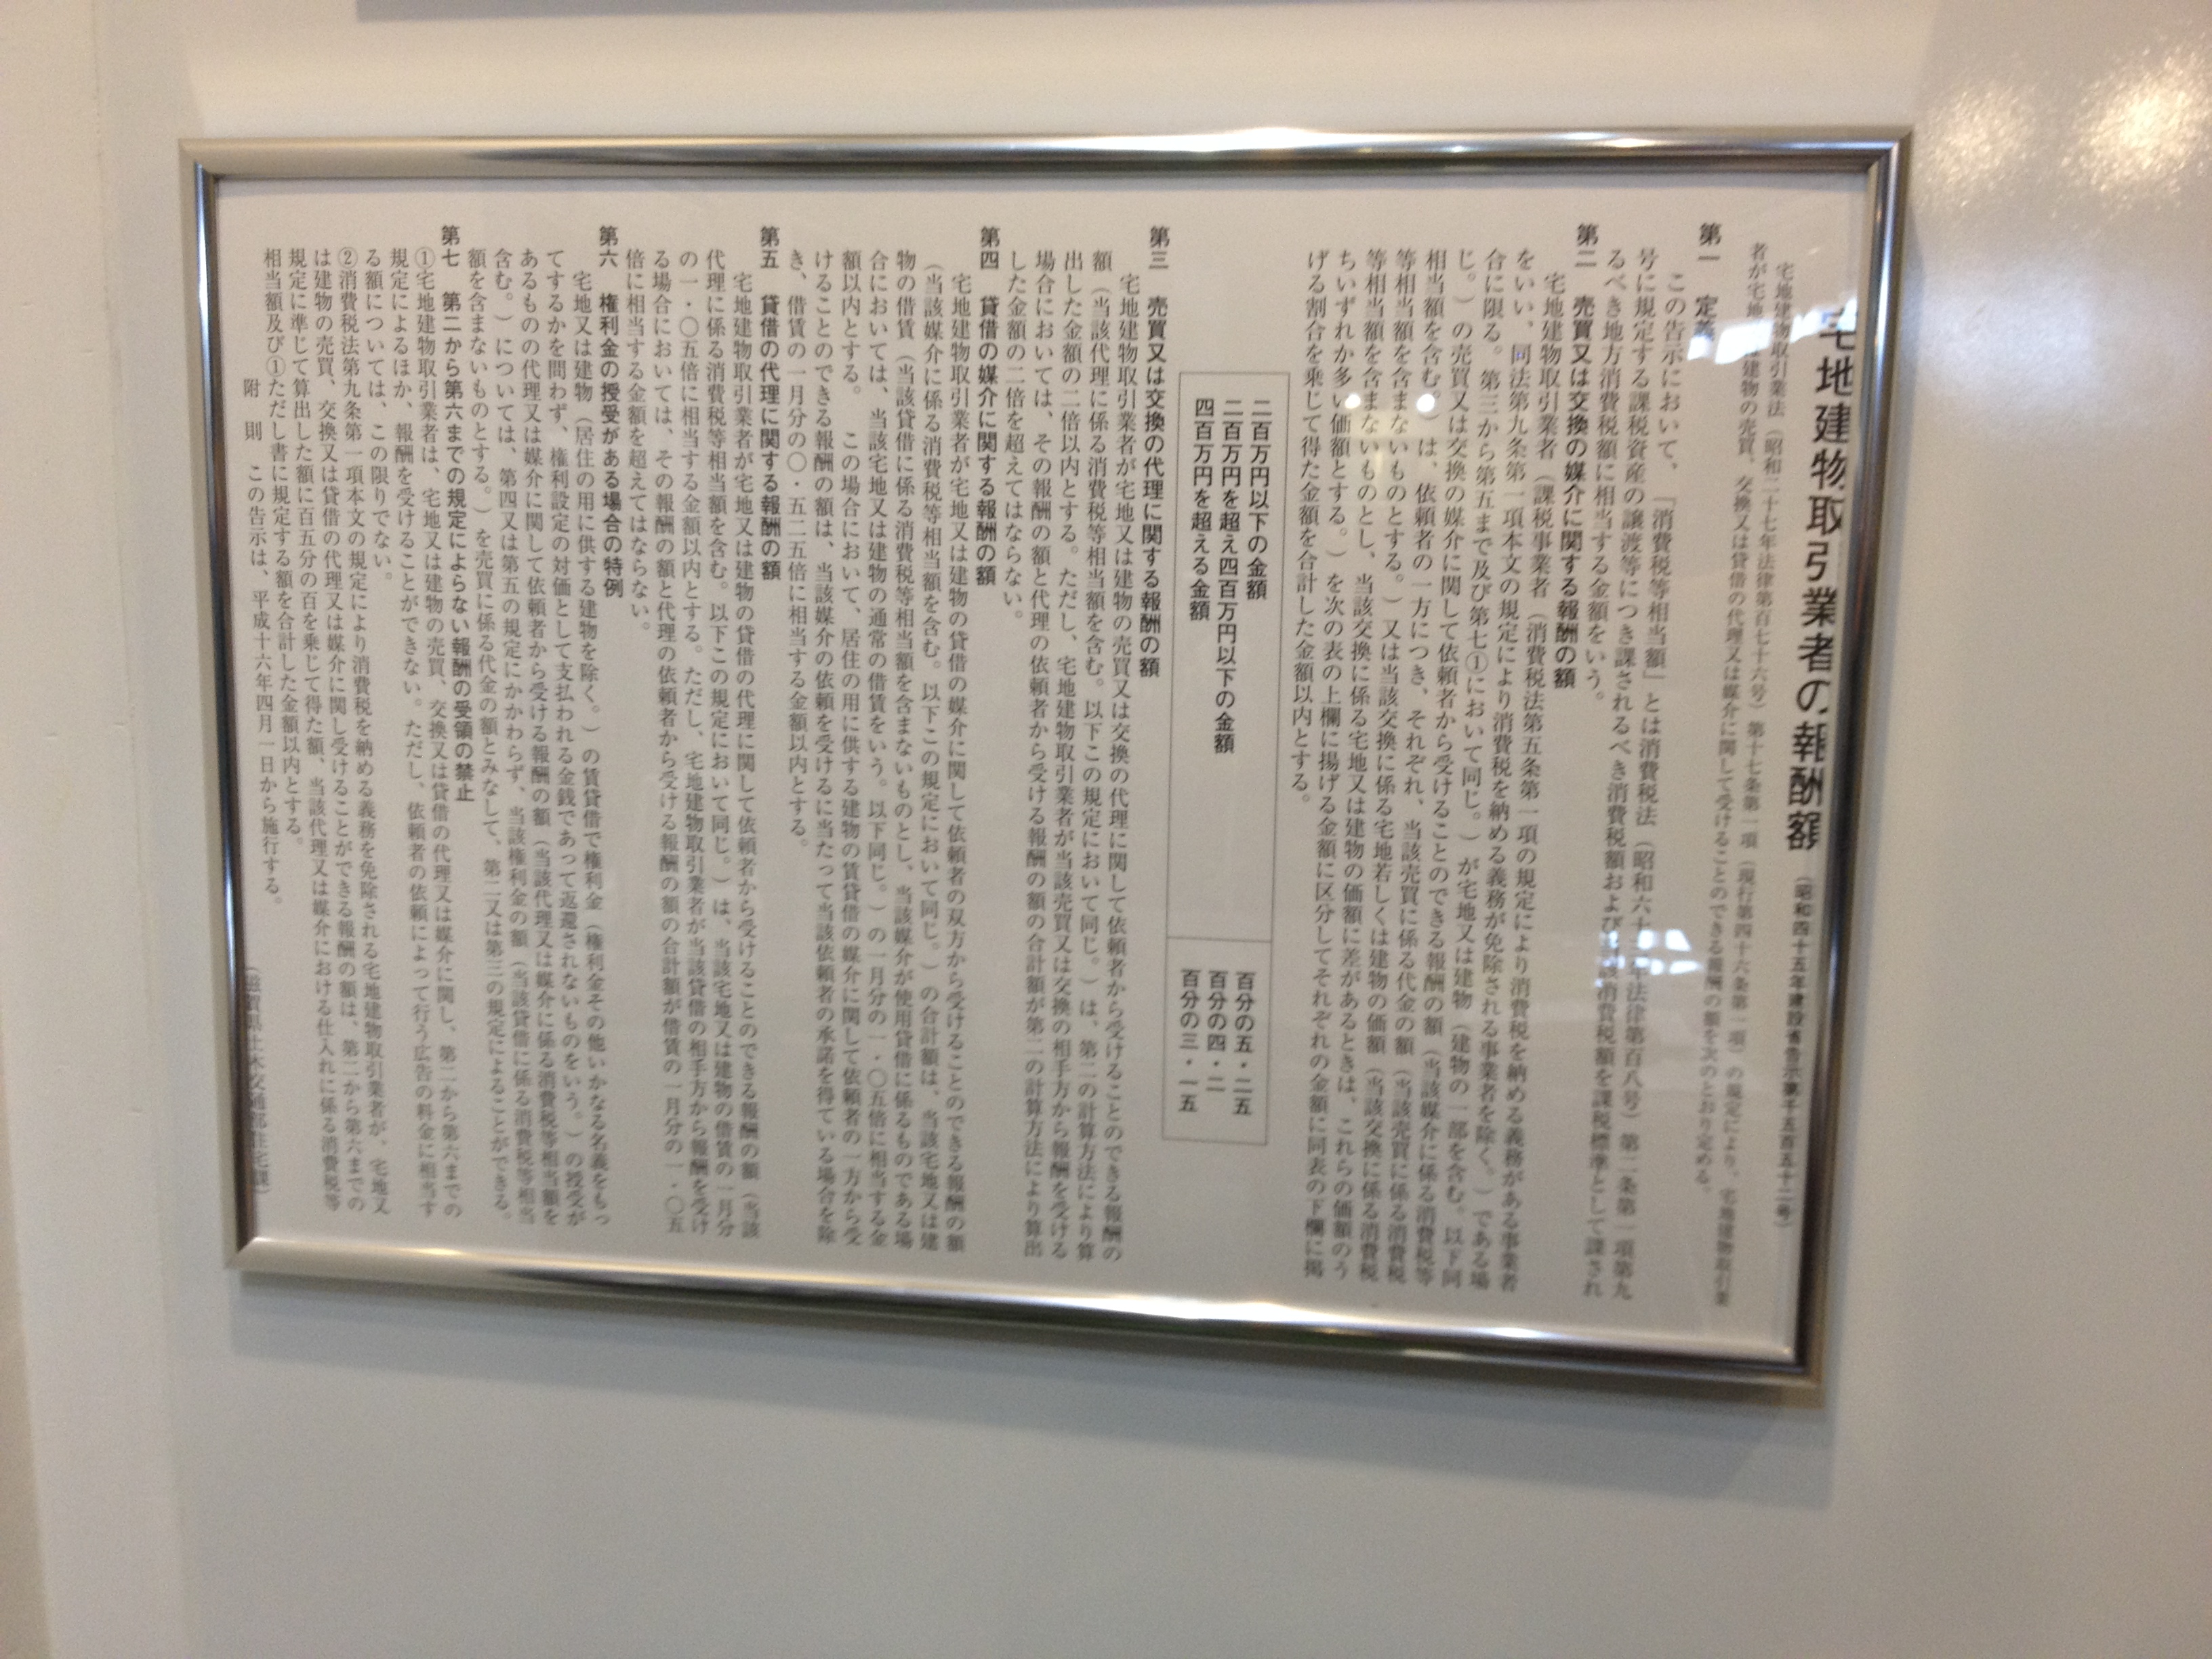 宅地建物取引業者の報酬額（昭和四十五年建設省告示第千五百五十二号）
宅地建物取引業法（昭和二十七年法律第百七十六号）第十七条第一項（現行第四十六条第一項）の規定により、宅地建物取引業
者が宅地又は建物の売買、交換又は貸借の代理又は媒介に関して受けることのできる報酬の額を次のとおり定める。
第一　定義
この告示において、「消費税等相当額」とは消費税法（昭和六十三年法律第百八号）第二条第一項第九
号に規定する課税資産の譲渡等につき課されるべき消費税額および当該消費税額を課税標準として課され
るべき地方消費税額に相当する金額をいう。
第二　売買又は交換の媒介に関する報酬の額
宅地建物取引業者（課税事業者（消費税法第五条第一項の規定により消費税を納める義務がある事業者
をいい、同法第九条第一項本文の規定により消費税を納める義務が免除される事業者を除く。）である場
合に限る。第三から第五まで及び第七①において同じ。）が宅地又は建物（建物の一部を含む。以下同
じ。）の売買又は交換の媒介に関して依頼者から受けることのできる報酬の額（当該媒介に係る消費税等
相当額を含む。）は、依頼者の一方につき、それぞれ、当該売買に係る代金の額（当該売買に係る消費税
等相当額を含まないものとする。）又は当該交換に係る宅地若しくは建物の価額（当該交換に係る消費税
等相当額を含まないものとし、当該交換に係る宅地又は建物の価額に差があるときは、これらの価額のう
ちいずれか多い価額とする。）を次の表の上欄に掲げる金額に区分してそれぞれの金額に同表の下欄に掲
げる割合を乗じて得た金額を合計した金額以内とする。
二百万円以下の金額　百分の五・二五
二百万円を超え四百万円以下の金額　百分の四・二
四百万円を超える金額　百分の三・一五
第三　売買又は交換の代理に関する報酬の額
宅地建物取引業者が宅地又は建物の売買又は交換の代理に関して依頼者から受けることのできる報酬の
額（当該代理に係る消費税等相当額を含む。以下この規定において同じ。）は、第二の計算方法により算
出した金額の二倍以内とする。ただし、宅地建物取引業者が当該売買又は交換の相手方から報酬を受ける
場合においては、その報酬の額と代理の依頼者から受ける報酬の額の合計額が第二の計算方法により算出
した金額の二倍を超えてはならない。
第四　貸借の媒介に関する報酬の額
宅地建物取引業者が宅地又は建物の貸借の媒介に関して依頼者の双方から受けることのできる報酬の額
（当該媒介に係る消費税等相当額を含む。以下この規定において同じ。）の合計額は、当該宅地又は建
物の借賃（当該貸借に係る消費税等相当額を含まないものとし、当該媒介が使用貸借に係るものである場
合においては、当該宅地又は建物の通常の借賃をいう。以下同じ。）の一月分の一・〇五倍に相当する金
額以内とする。　この場合において、居住の用に供する建物の賃貸借の媒介に関して依頼者の一方から受
けることのできる報酬の額は、当該媒介の依頼を受けるに当たって当該依頼者の承諾を得ている場合を除
き、借賃の一月分の〇・五二五倍に相当する金額以内とする。
第五　貸借の代理に関する報酬の額
宅地建物取引業者が宅地又は建物の貸借の代理に関して依頼者から受けることのできる報酬の額（当該
代理に係る消費税等相当額を含む。以下この規定において同じ。）は、当該宅地又は建物の借賃の一月分
の一・〇五倍に相当する金額以内とする。ただし、宅地建物取引業者が当該貸借の相手方から報酬を受け
る場合においては、その報酬の額と代理の依頼者から受ける報酬の額の合計額が借賃の一月分の一・〇五
倍に相当する金額を超えてはならない。
第六　権利金の授受がある場合の特例
宅地又は建物（居住の用に供する建物を除く。）の賃貸借で権利金（権利金その他いかなる名義をもっ
てするかを問わず、権利設定の対価として支払われる金銭であって返還されないものをいう。）の授受が
あるものの代理又は媒介に関して依頼者から受ける報酬の額（当該代理又は媒介に係る消費税等相当額を
含む。）については、第四又は第五の規定にかかわらず、当該権利金の額（当該貸借に係る消費税等相当
額を含まないものとする。）を売買に係る代金の額とみなして、第二又は第三の規定によることができる。
第七　第二から第六までの規定によらない報酬の受領の禁止
①宅地建物取引業者は、宅地又は建物の売買、交換又は貸借の代理又は媒介に関し、第二から第六までの
規定によるほか、報酬を受けることができない。ただし、依頼者の依頼によって行う広告の料金に相当す
る額については、この限りでない。
②消費税法第九条第一項本文の規定により消費税を納める義務を免除される宅地建物取引業者が、宅地又
は建物の売買、交換又は貸借の代理又は媒介に関し受けることができる報酬の額は、第二から第六までの
規定に準じて算出した額に百五分の百を乗じて得た額、当該代理又は媒介における仕入れに係る消費税等
相当額及び①ただし書に規定する額を合計した金額以内とする。
附　則　この告示は、平成十六年四月一日から施行する。
（滋賀県土木交通部住宅課）